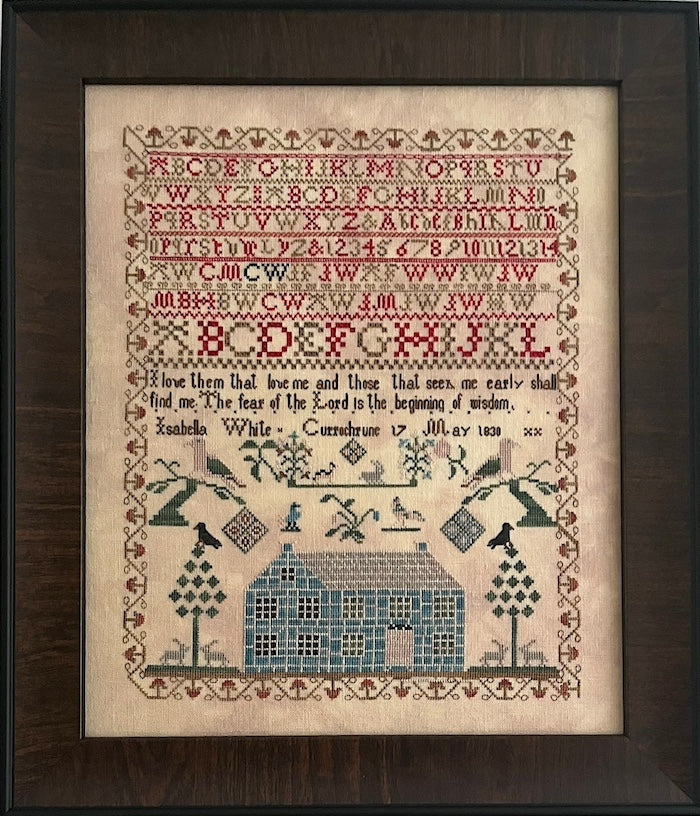 ABCDEFGHIJKLMNOPQRSTU
VWXYZ
PQRSTUVWXYZ&
opqrstuvwxyz&1234567891011121314
AW CM CW IW WW IW IW
MB HB W CW AW IM IW IW
ABCDEFGHIJKL
I love them that love me and those that seek me early shall
find me. The fear of the Lord is the beginning of wisdom.
Isabella White Currochrune 17 May 1830 xx